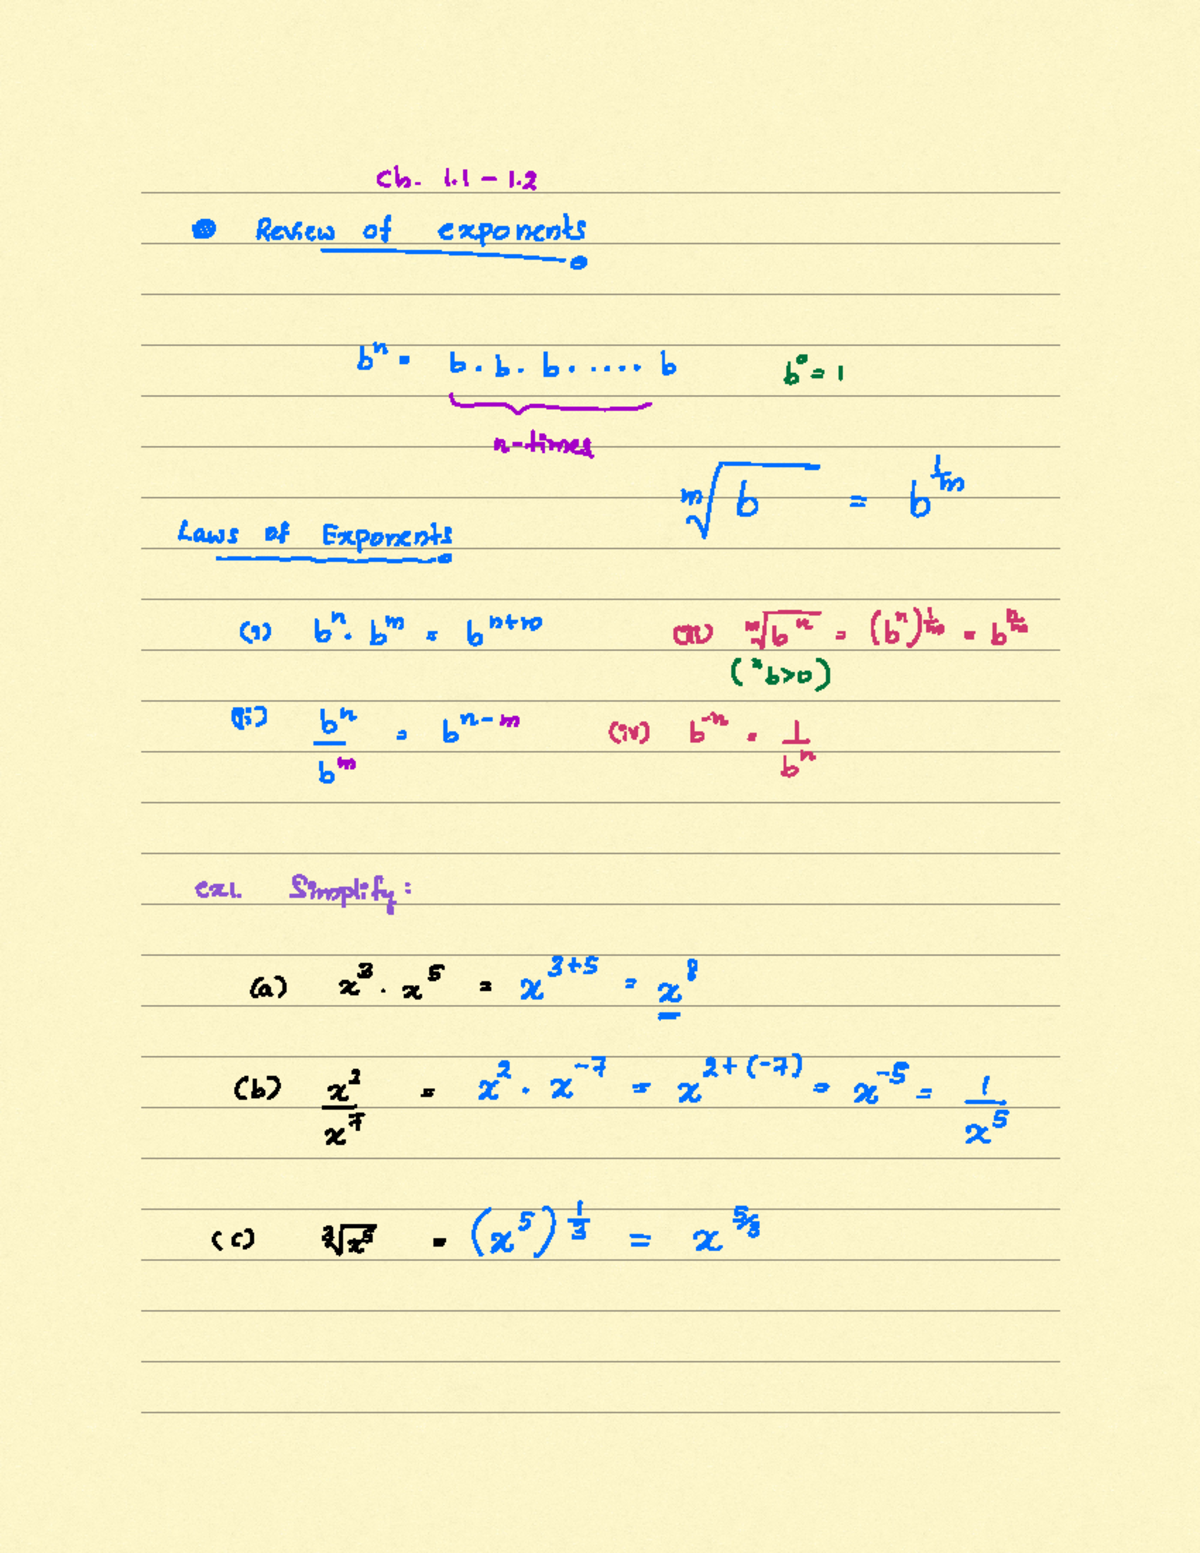 Ch. 1.1 - 1.2
Review of exponents
bⁿ = b . b . b . .... b    b⁰ = 1
n-times
ᵐ√b = b^(1/m)
Laws of Exponents
(i) bⁿ . bᵐ = bⁿ⁺ᵐ    (iii) ᵐ√(bⁿ) = (bⁿ)^(1/m) = b^(n/m)
b>0)
(ii) bⁿ/bᵐ = bⁿ⁻ᵐ    (iv) b⁻ⁿ = 1/bⁿ
ex1. Simplify:
(a) x³ . x⁵ = x³⁺⁵ = x⁸
(b) x²/x⁷ = x² . x⁻⁷ = x^(2+(-7)) = x⁻⁵ = 1/x⁵
(c) ³√(x⁵) = (x⁵)^(1/3) = x^(5/3)